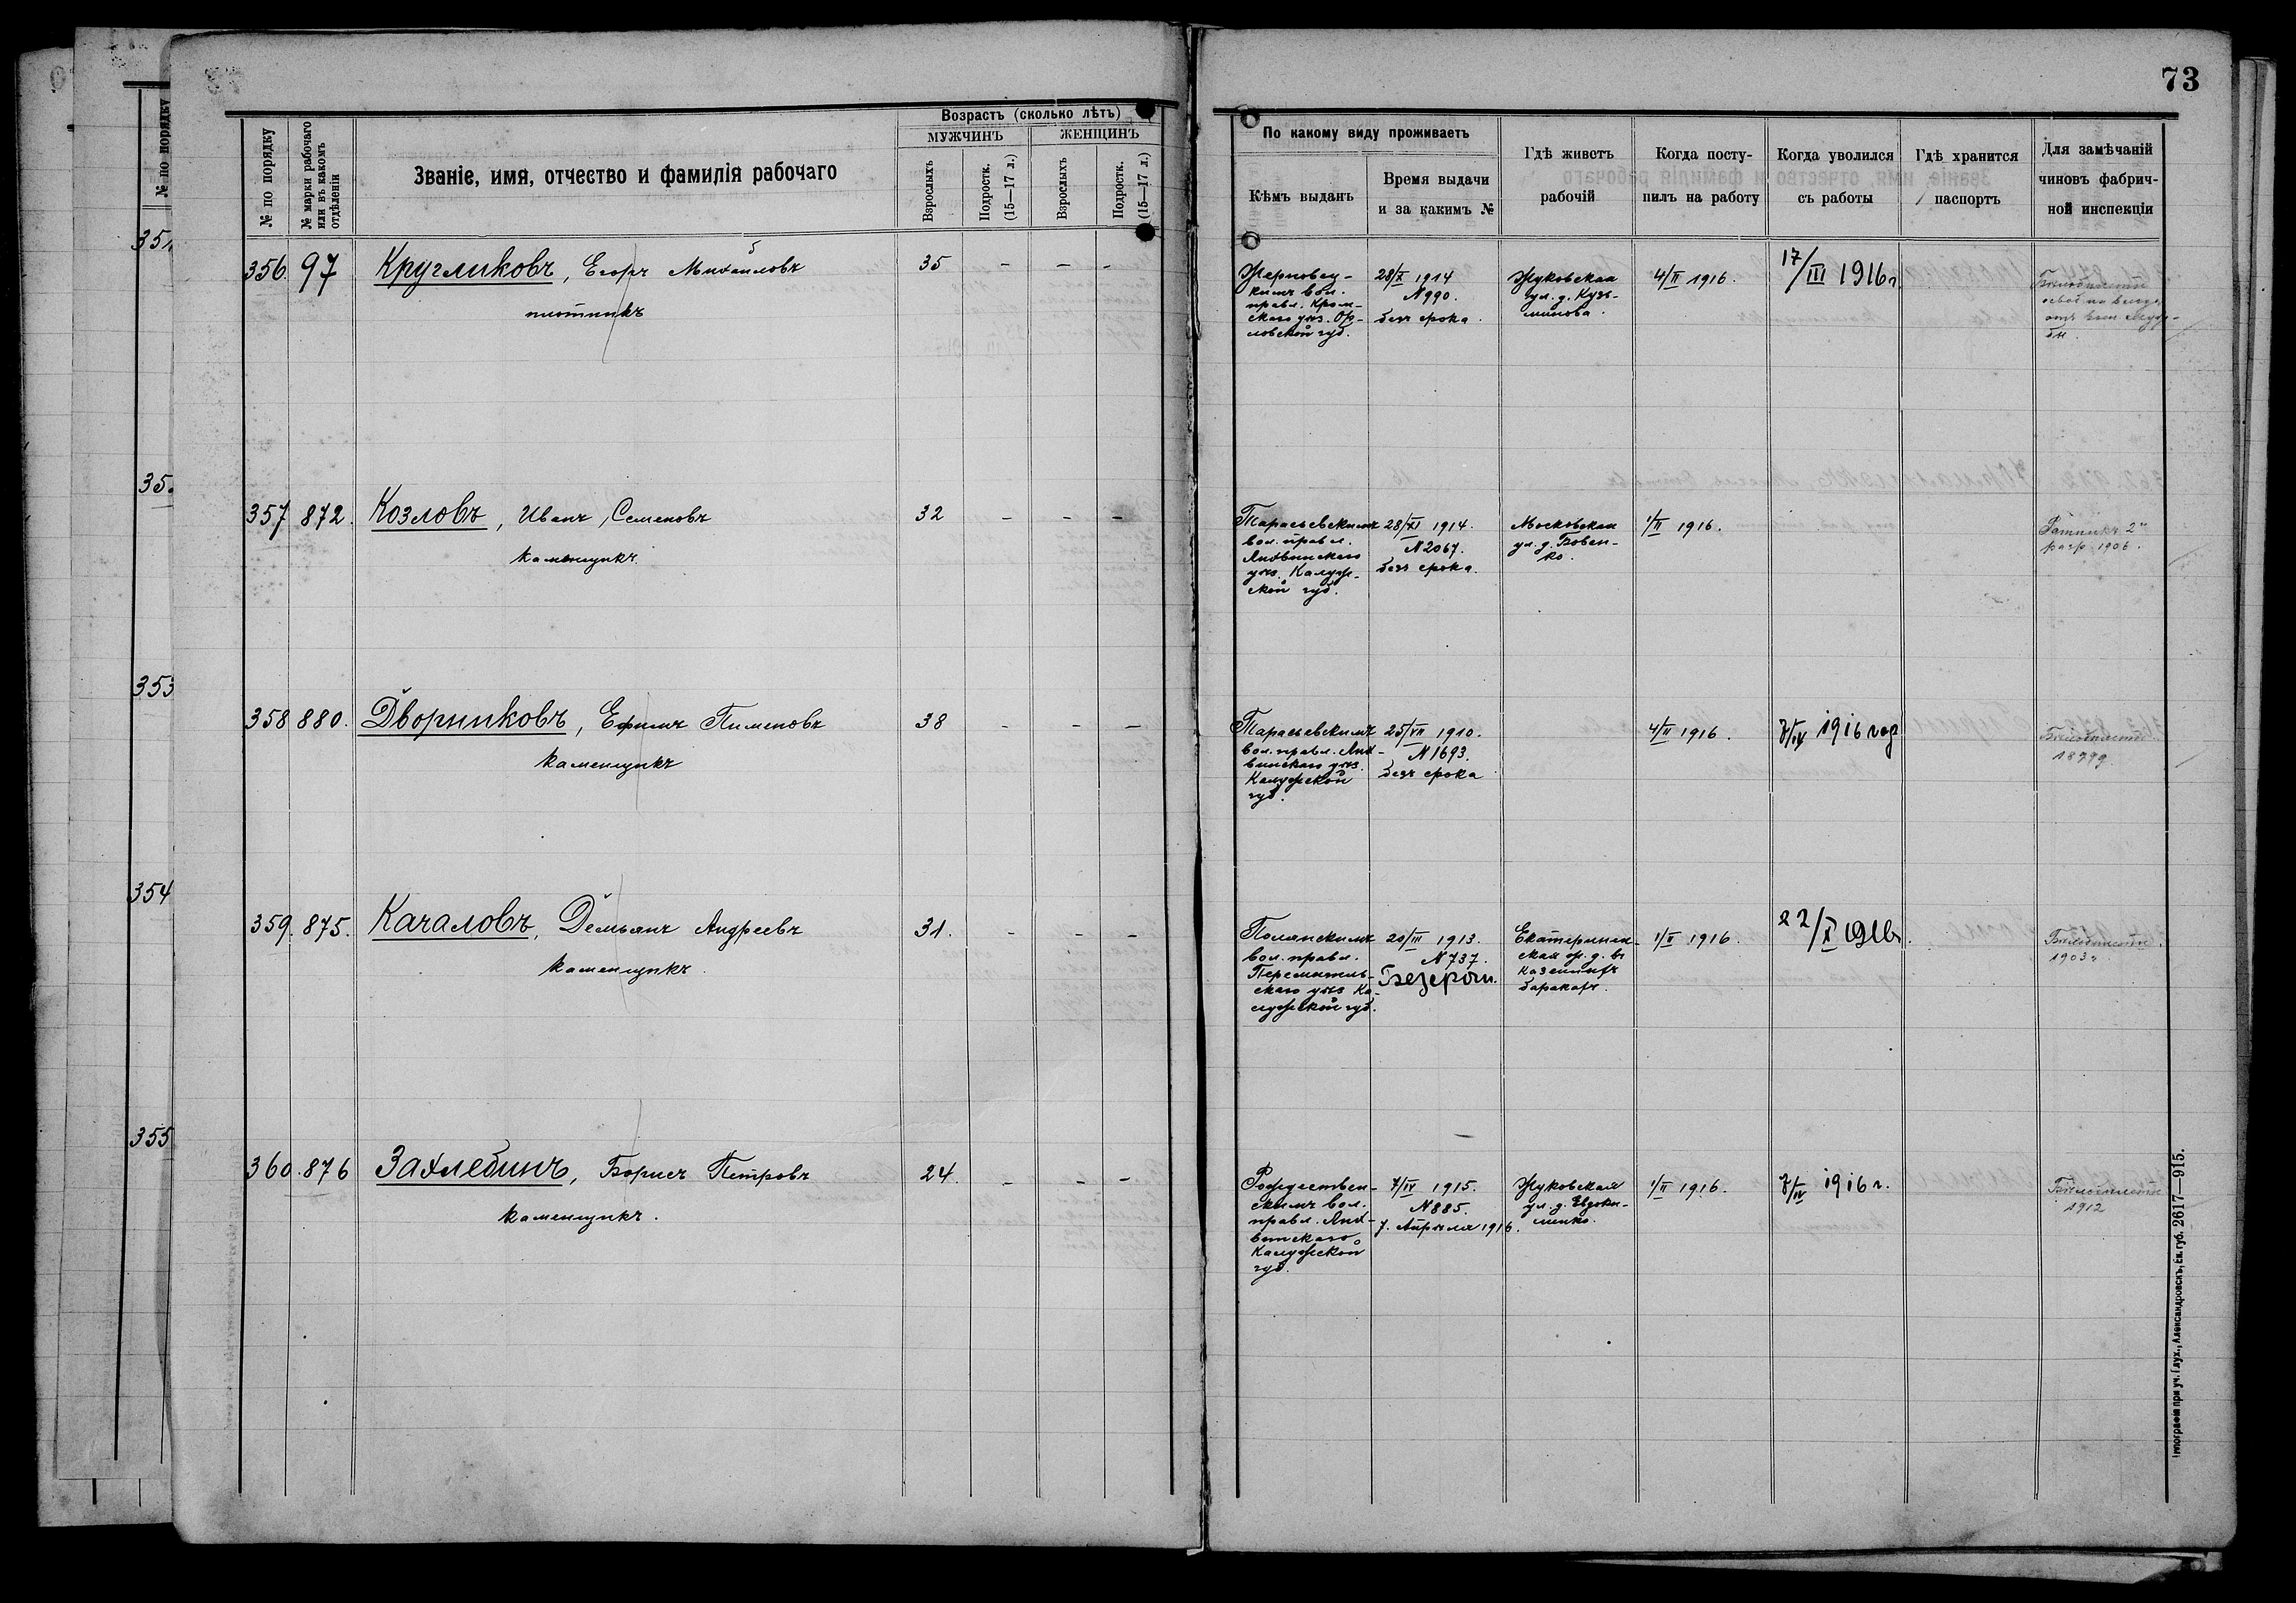 73
№ по порядку
№ марки рабочаго или въ какомъ отдѣленіи
Званіе, имя, отчество и фамилія рабочаго
Возрастъ (сколько лѣтъ)
МУЖЧИНЪ
ЖЕНЩИНЪ
Взрослыхъ
Подростк. (15—17 л.)
Взрослыхъ
Подростк. (15—17 л.)
По какому виду проживаетъ
Кѣмъ выданъ
Время выдачи
и за какимъ №
Гдѣ живетъ
рабочій
Когда посту-
пилъ на работу
Когда уволился
съ работы
Гдѣ хранится
паспортъ
Для замѣчаній
чиновъ фабрич-
ной инспекціи
№ по порядку
351
35
353
354
355
356. 97 Кругликовъ, Егоръ Михайловъ 35 – – –
плотникъ
вол.
правл. Кром-
скаго уѣз. Ор-
ловской губ.
28/X 1914
N990.
безъ срока.
Жуковская
ул. д. Кузь-
минова.
4/II 1916.
17/III 1916г
357 872. Козловъ, Иванъ Семеновъ 32 – – –
каменщикъ.
Тарасьевскимъ
вол. правл.
Лихвинскаго
уѣз. Калуж-
ской губ.
28/XI 1914.
N2067.
безъ срока.
Московская
ул. д. Бовен-
ко.
1/II 1916.
Ратникъ 2го
разр. 1906.
358 880. Дворниковъ, Ефимъ Пименовъ 38 – – –
каменщикъ
Тарасьевскимъ
вол. правл. Лих-
винскаго уѣз.
Калужской
губ.
25/VII 1910.
N1693.
безъ срока
4/II 1916.
7/IV 1916 год
Бѣлобилетн.
359. 875. Качаловъ, Демьянъ Андреевъ 31. – – –
каменщикъ.
Полянскимъ
вол. правл.
Перемышль-
скаго уѣз Ка-
лужской губ.
20/III 1913.
N737.
Екатеринин-
ская ул. д. въ
казенныхъ
баракахъ.
1/II 1916.
22/X 1916г.
Бѣлобилетн.
1903г
360. 876 Захлебинъ, Борисъ Петровъ 24. – – –
каменщикъ.
Рождествен-
скимъ вол.
правл. Лих-
винскаго
Калужской
губ.
7/IV 1915.
N885.
7. Апрѣля 1916.
Жуковская
ул. д. Евдоки-
менко.
1/II 1916.
7/IV 1916г.
Бѣлобилетн.
1912
Александровскъ, Ек. губ. 2617—915.